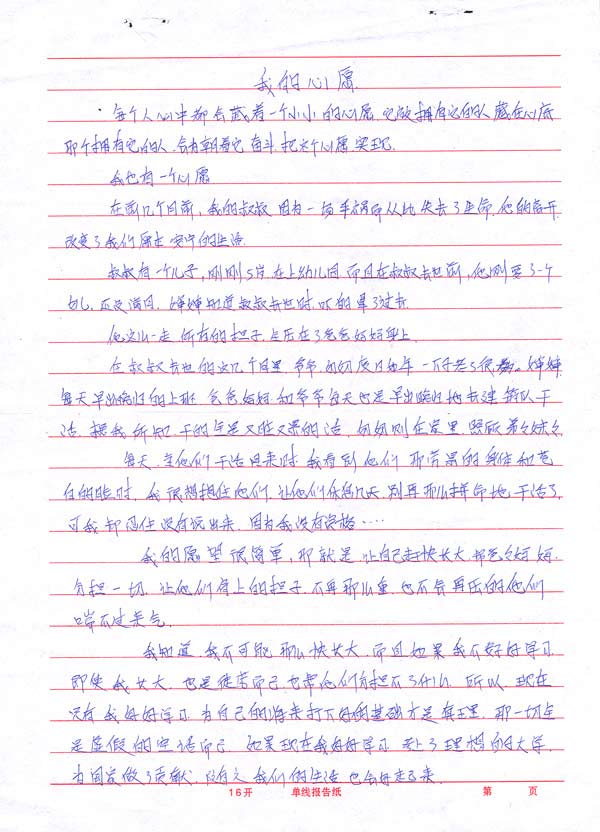 我的心愿
每个人心中都会藏着一个小小的心愿 它被拥有它的人 藏在心底
那个拥有它的人 会朝着它奋斗 把这个心愿 实现
我也有一个心愿
在前几个月前，我的叔叔 因为一场车祸而从此失去了生命 他的离开
改变了我们原本安宁的生活
叔叔有一个儿子，刚刚5岁 在上幼儿园 而且在叔叔去世前，他刚要了一个
女儿 还没满月 婶婶知道叔叔去世时 吓的晕了过去
他这么一走 所有的担子 全压在了爸爸妈妈身上
在叔叔去世的这几个月里 爷爷奶奶度日如年 一下子老了很多。婶婶
每天早出晚归的上班 爸爸妈妈和爷爷每天也是早出晚归地去建筑队干
活 据我所知 干的全是又脏又累的活 奶奶则在家里 照顾弟弟妹妹
每天，当他们干活回来时 我看到他们 那劳累的身体和苍
白的脸时 我很想抱住他们 让他们休息几天 别再那么拼命地干活了
可我却忍住没有说出来 因为我没有资格……
我的愿望很简单，那就是 让自己赶快长大 帮爸爸妈妈
负担一切 让他们身上的担子 不再那么重 也不会再压的他们
喘不过来气
我知道 我不可能那么快长大 而且如果我不好好学习
即使我长大 也是徒劳而已 也帮他们负担不了什么 所以 现在
只有我好好学习 为自己的将来打下好的基础才是真理 那一切全
是虚假的空话而已 如果现在我好好学习 考上了理想的大学
为国家做了贡献 我们的生活 也会好起来
16开 单线报告纸 第 页